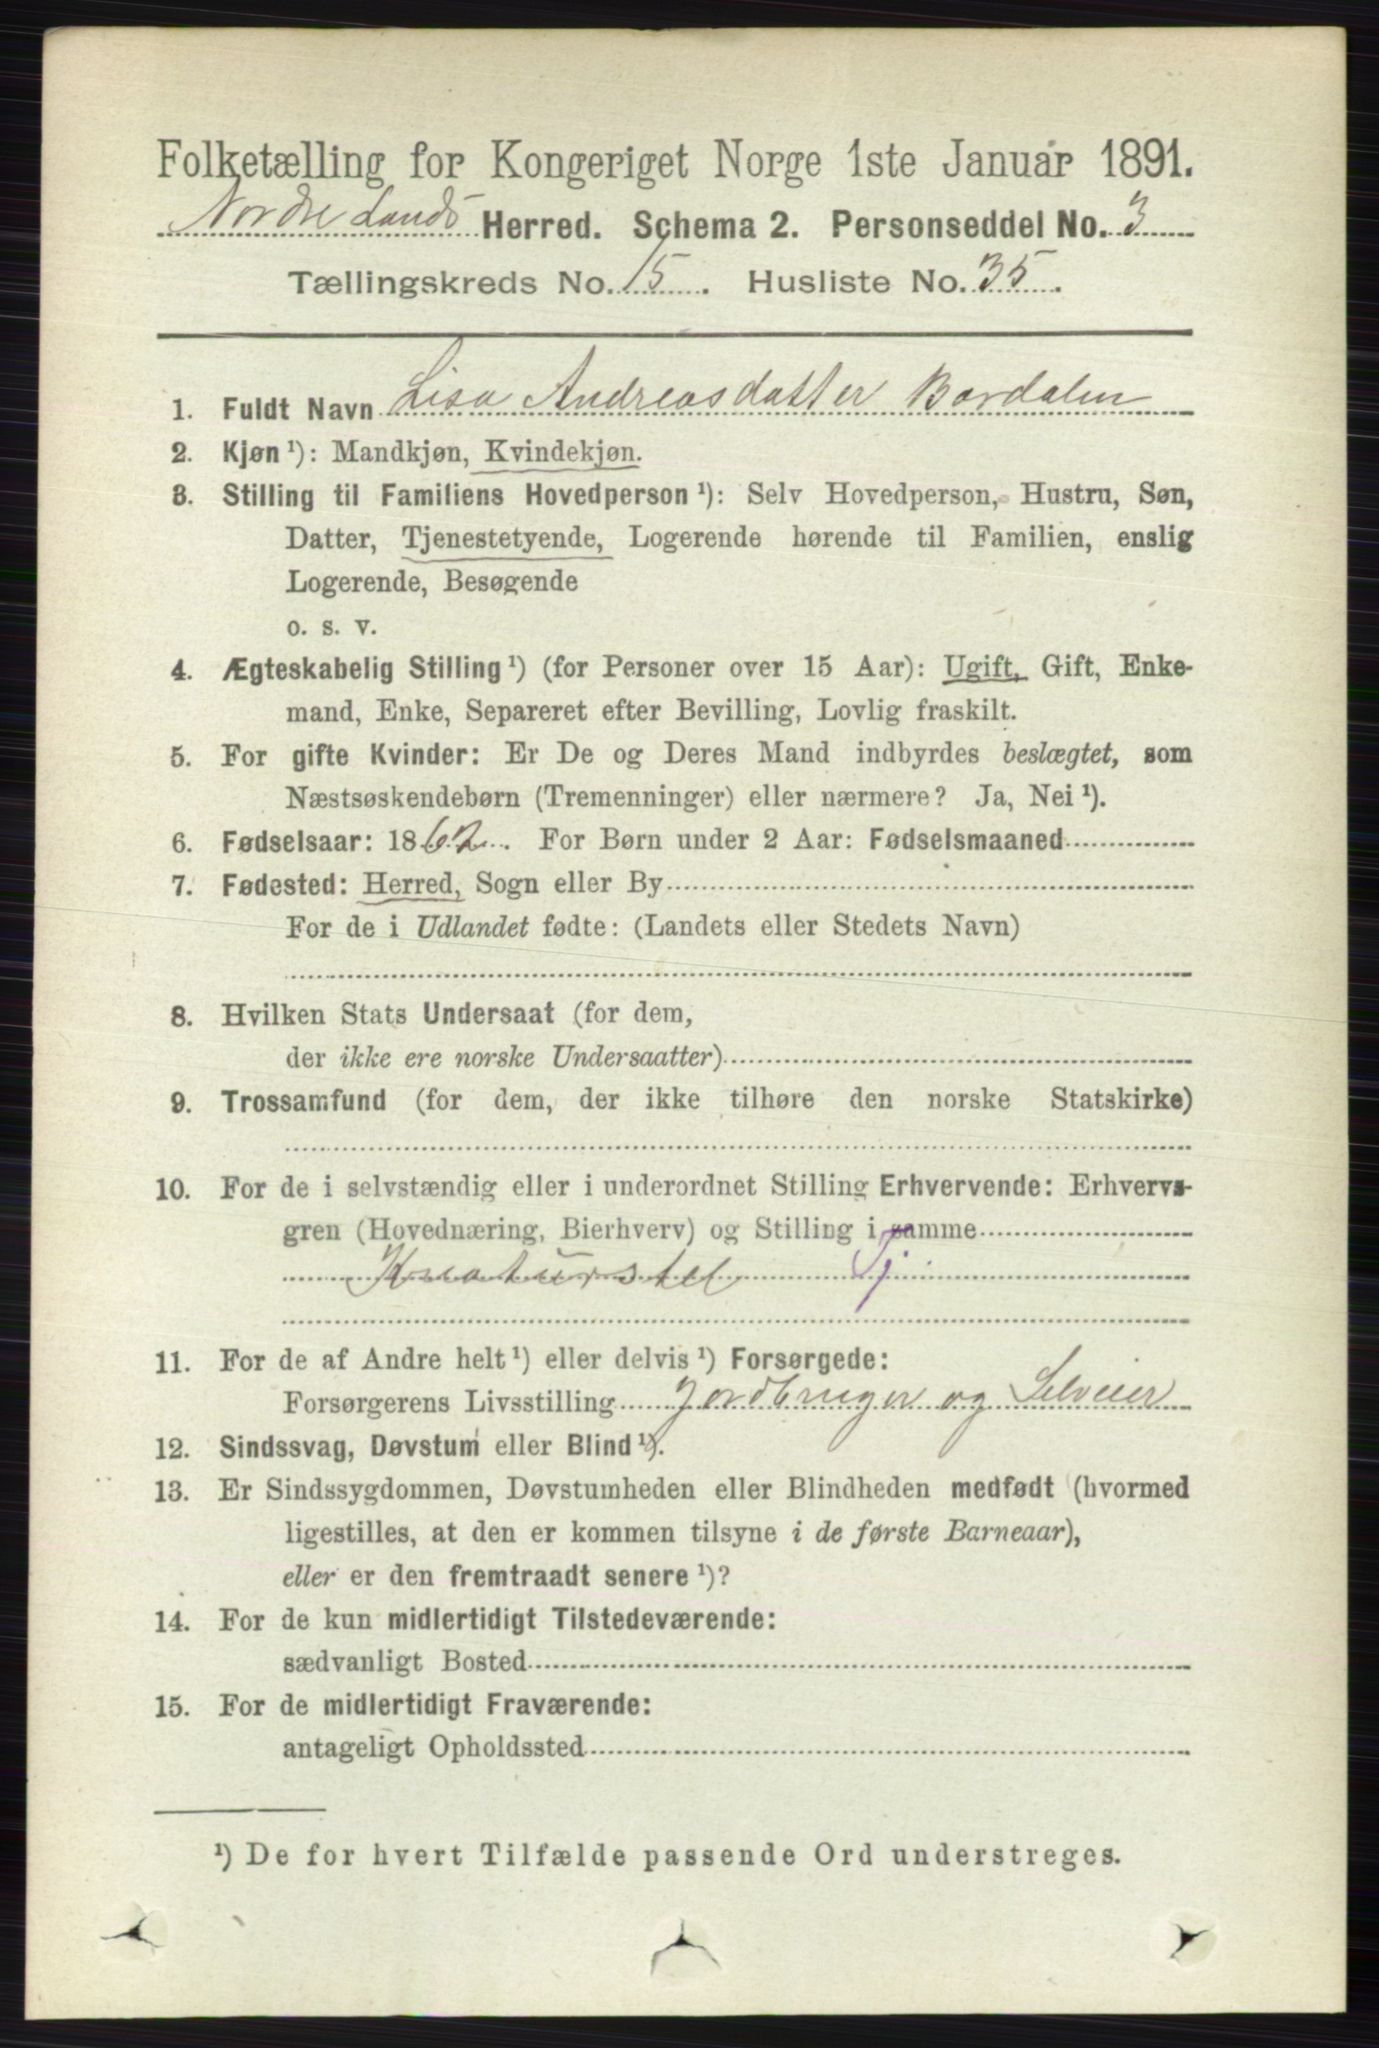 Folketælling for Kongeriget Norge 1ste Januar 1891.
Nordre Lands Herred. Schema 2. Personseddel No. 3
Tællingskreds No. 15. Husliste No. 35.
1. Fuldt Navn Lisa Andreasdatter Bardalen
2. Kjøn ¹): Mandkjøn, Kvindekjøn.
3. Stilling til Familiens Hovedperson ¹): Selv Hovedperson, Hustru, Søn,
Datter, Tjenestetyende, Logerende hørende til Familien, enslig
Logerende, Besøgende
o. s. v.
4. Ægteskabelig Stilling ¹) (for Personer over 15 Aar): Ugift, Gift, Enke-
mand, Enke, Separeret efter Bevilling, Lovlig fraskilt.
5. For gifte Kvinder: Er De og Deres Mand indbyrdes beslægtet, som
Næstsøskendebørn (Tremenninger) eller nærmere? Ja, Nei ¹).
6. Fødselsaar: 1862. For Børn under 2 Aar: Fødselsmaaned
7. Fødested: Herred, Sogn eller By
For de i Udlandet fødte: (Landets eller Stedets Navn)
8. Hvilken Stats Undersaat (for dem,
der ikke ere norske Undersaatter)
9. Trossamfund (for dem, der ikke tilhøre den norske Statskirke)
10. For de i selvstændig eller i underordnet Stilling Erhvervende: Erhvervs-
gren (Hovednæring, Bierhverv) og Stilling i samme
Kreaturstel Tj
11. For de af Andre helt ¹) eller delvis ¹) Forsørgede:
Forsørgerens Livsstilling Jordbruger og Selveier
12. Sindssvag, Døvstum eller Blind ¹).
13. Er Sindssygdommen, Døvstumheden eller Blindheden medfødt (hvormed
ligestilles, at den er kommen tilsyne i de første Barneaar),
eller er den fremtraadt senere ¹)?
14. For de kun midlertidigt Tilstedeværende:
sædvanligt Bosted
15. For de midlertidigt Fraværende:
antageligt Opholdssted
¹) De for hvert Tilfælde passende Ord understreges.